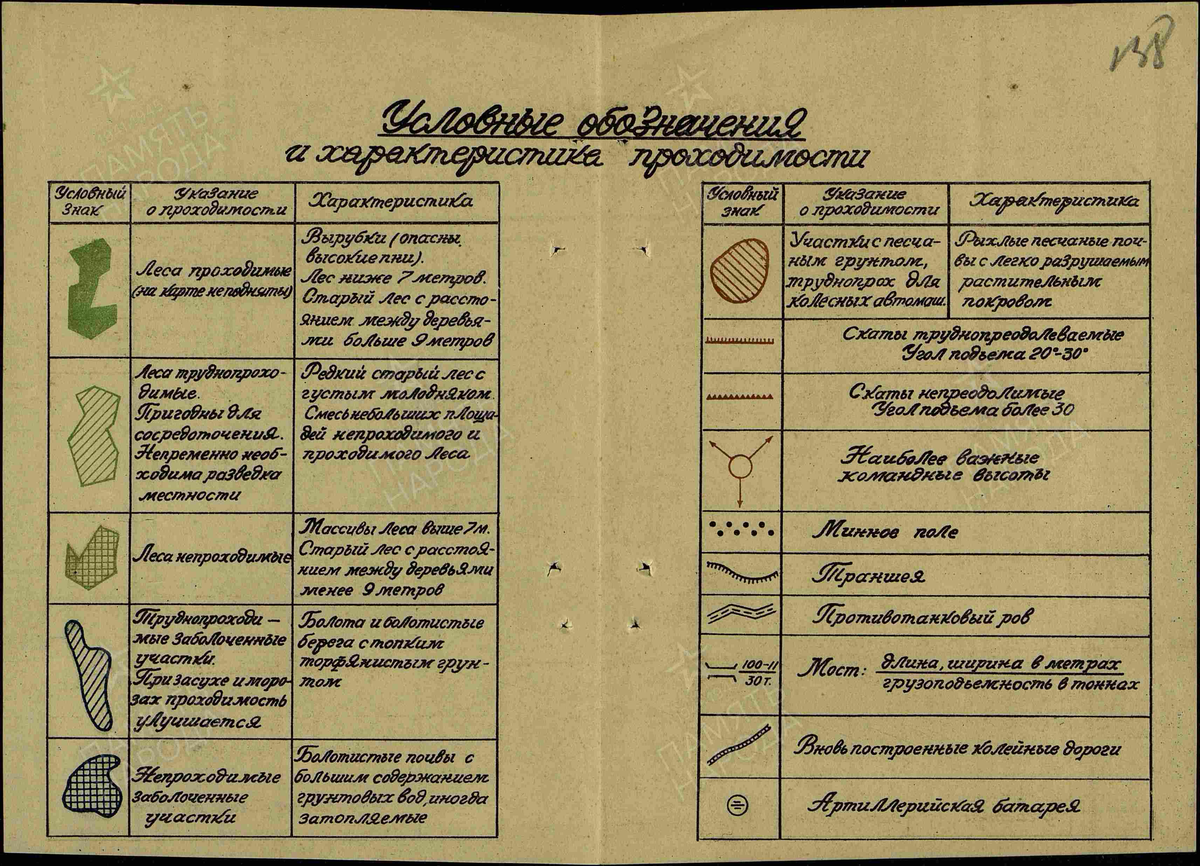 138
Условные обозначения
и характеристика проходимости
Условный
знак
Указание
о проходимости
Характеристика
Леса проходимые
(на карте не подняты)
Вырубки (опасны
высокие пни).
Лес ниже 7 метров.
Старый лес с рассто-
янием между деревья-
ми больше 9 метров
Леса труднопрохо-
димые.
Пригодны для
сосредоточения.
Непременно необ-
ходима разведка
местности
Редкий старый лес с
густым молодняком.
Смесь небольших площа-
дей непроходимого и
проходимого леса
Леса непроходимые
Массивы леса выше 7 м.
Старый лес с расстоя-
нием между деревьями
менее 9 метров
Труднопроходи-
мые заболоченные
участки.
При засухе и моро-
зах проходимость
улучшается
Болота и болотистые
берега с топким
торфянистым грун-
том
Непроходимые
заболоченные
участки
Болотистые почвы с
большим содержанием
грунтовых вод, иногда
затопляемые
Условный
знак
Указание
о проходимости
Характеристика
Участки с песча-
ным грунтом,
труднопрох для
колесных автомаш.
Рыхлые песчаные поч-
вы с легко разрушаемым
растительным
покровом
Скаты труднопреодолеваемые
Угол подьема 20°-30°
Скаты непреодолимые
Угол подьема более 30
Наиболее важные
командные высоты
Минное поле
Траншея
Противотанковый ров
100-11
30 т.
Мост: длина, ширина в метрах
грузоподьемность в тоннах
Вновь построенные колейные дороги
Артиллерийская батарея
ПАМЯТЬ
НАРОДА
ПАМЯТЬ
НАРОДА
ПАМЯТЬ
НАРОДА
ПАМЯТЬ
НАРОДА
ПАМЯТЬ
НАРОДА
ПАМЯТЬ
НАРОДА